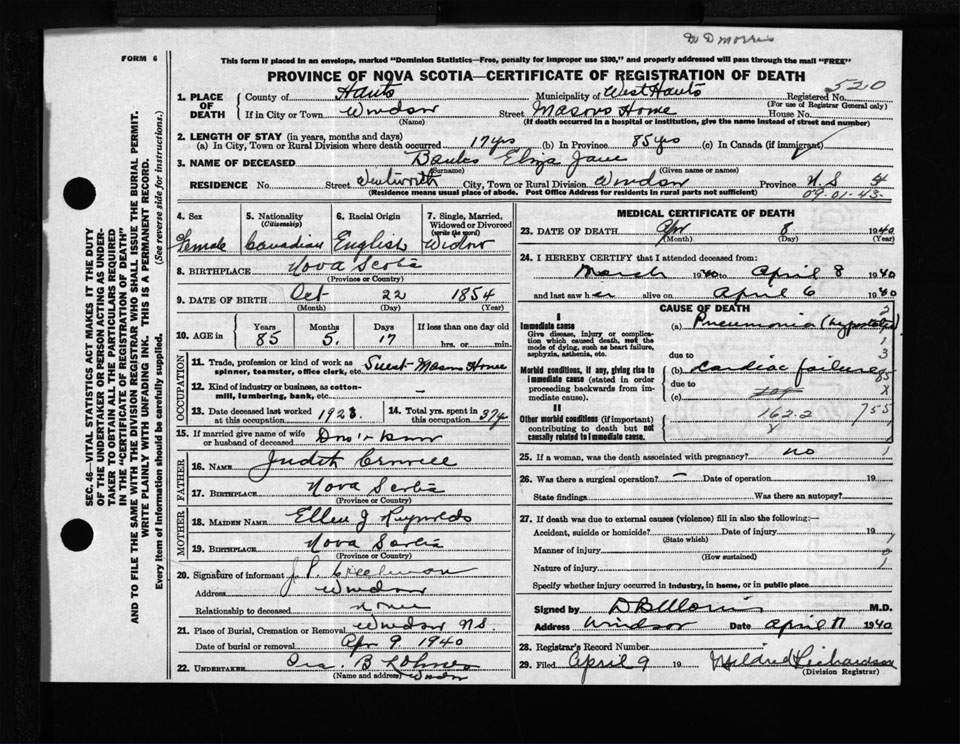 W D Morris
FORM 6
This form if placed in an envelope, marked "Dominion Statistics—Free, penalty for improper use $300," and properly addressed will pass through the mail "FREE"
PROVINCE OF NOVA SCOTIA—CERTIFICATE OF REGISTRATION OF DEATH
520
1. PLACE OF DEATH County of Hants Municipality of West Hants Registered No.
(For use of Registrar General only)
If in City or Town Windsor Street Masons Home House No.
(Name) (If death occurred in a hospital or institution, give the name instead of street and number)
2. LENGTH OF STAY (in years, months and days)
(a) In City, Town or Rural Division where death occurred 17 yrs (b) In Province 85 yrs (c) In Canada (if immigrant)
3. NAME OF DECEASED Banks Eliza Jane
(Surname) (Given name or names)
RESIDENCE No. Street Wentworth City, Town or Rural Division Windsor Province N.S 4
(Residence means usual place of abode. Post Office Address for residents in rural parts not sufficient) 09-01-43-
4. Sex Female
5. Nationality (Citizenship) Canadian
6. Racial Origin English
7. Single, Married, Widowed or Divorced (write the word) Widow
8. BIRTHPLACE Nova Scotia
(Province or Country)
9. DATE OF BIRTH Oct 22 1854
(Month) (Day) (Year)
10. AGE in Years 85 Months 5. Days 17 If less than one day old
hrs. or min.
OCCUPATION
11. Trade, profession or kind of work as spinner, teamster, office clerk, etc. Guest-Masons Home
12. Kind of industry or business, as cotton-mill, lumbering, bank, etc.
13. Date deceased last worked at this occupation 1923. 14. Total yrs. spent in this occupation
15. If married give name of wife or husband of deceased Don't know
FATHER
16. NAME Judith
17. BIRTHPLACE Nova Scotia
(Province or Country)
MOTHER
18. MAIDEN NAME Ellen J Reynolds
19. BIRTHPLACE Nova Scotia
(Province or Country)
20. Signature of informant J. P. Creelman
Address Windsor
Relationship to deceased none
21. Place of Burial, Cremation or Removal Windsor N.S.
Date of burial or removal Apr 9 1940
22. UNDERTAKER B Lohnes
(Name and address) Windsor
MEDICAL CERTIFICATE OF DEATH
23. DATE OF DEATH Apr 8 1940
(Month) (Day) (Year)
24. I HEREBY CERTIFY that I attended deceased from:
March 1940 to April 8 1940
and last saw her alive on April 6 1940
CAUSE OF DEATH
I
Immediate cause (a) Pneumonia (hypostatic)
Give disease, injury or complication which caused death, not the mode of dying, such as heart failure, asphyxia, asthenia, etc.
due to
Morbid conditions, if any, giving rise to immediate cause (stated in order proceeding backwards from immediate cause). (b) Cardiac failure
due to
(c)
II
Other morbid conditions (if important) contributing to death but not causally related to immediate cause.
162.2 755
X
25. If a woman, was the death associated with pregnancy? no
26. Was there a surgical operation? — Date of operation 19
State findings Was there an autopsy?
27. If death was due to external causes (violence) fill in also the following:—
Accident, suicide or homicide? Date of injury 19
(State which)
Manner of injury
(How sustained)
Nature of injury
Specify whether injury occurred in industry, in home, or in public place
Signed by D B Morris M.D.
Address Windsor Date April 11 1940
28. Registrar's Record Number
29. Filed April 9 19 Mildred Richardson
(Division Registrar)
SEC. 46—VITAL STATISTICS ACT MAKES IT THE DUTY
OF THE UNDERTAKER OR PERSON ACTING AS UNDER-
TAKER TO OBTAIN ALL THE PARTICULARS REQUIRED
IN THE "CERTIFICATE OF REGISTRATION OF DEATH"
AND TO FILE THE SAME WITH THE DIVISION REGISTRAR WHO SHALL ISSUE THE BURIAL PERMIT.
WRITE PLAINLY WITH UNFADING INK. THIS IS A PERMANENT RECORD.
Every item of information should be carefully supplied. (See reverse side for instructions.)